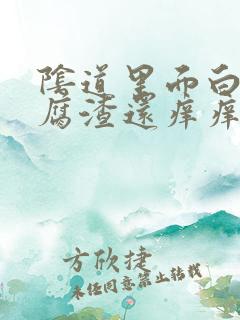 陰道里面白
腐渣還痒痒
方欣捷
未经同意禁止转载